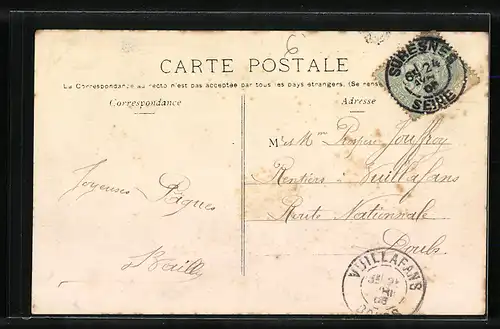 6
CARTE POSTALE
La Correspondance au recto n'est pas acceptée par tous les pays étrangers. (Se rense
Correspondance
Adresse
SURESNES
24
SEINE
Mr et Mme Prosper Jouffroy
Rentiers à Vuillafans
Route Nationale
Doubs
Joyeuses Pâques
L Bailly
VUILLAFANS